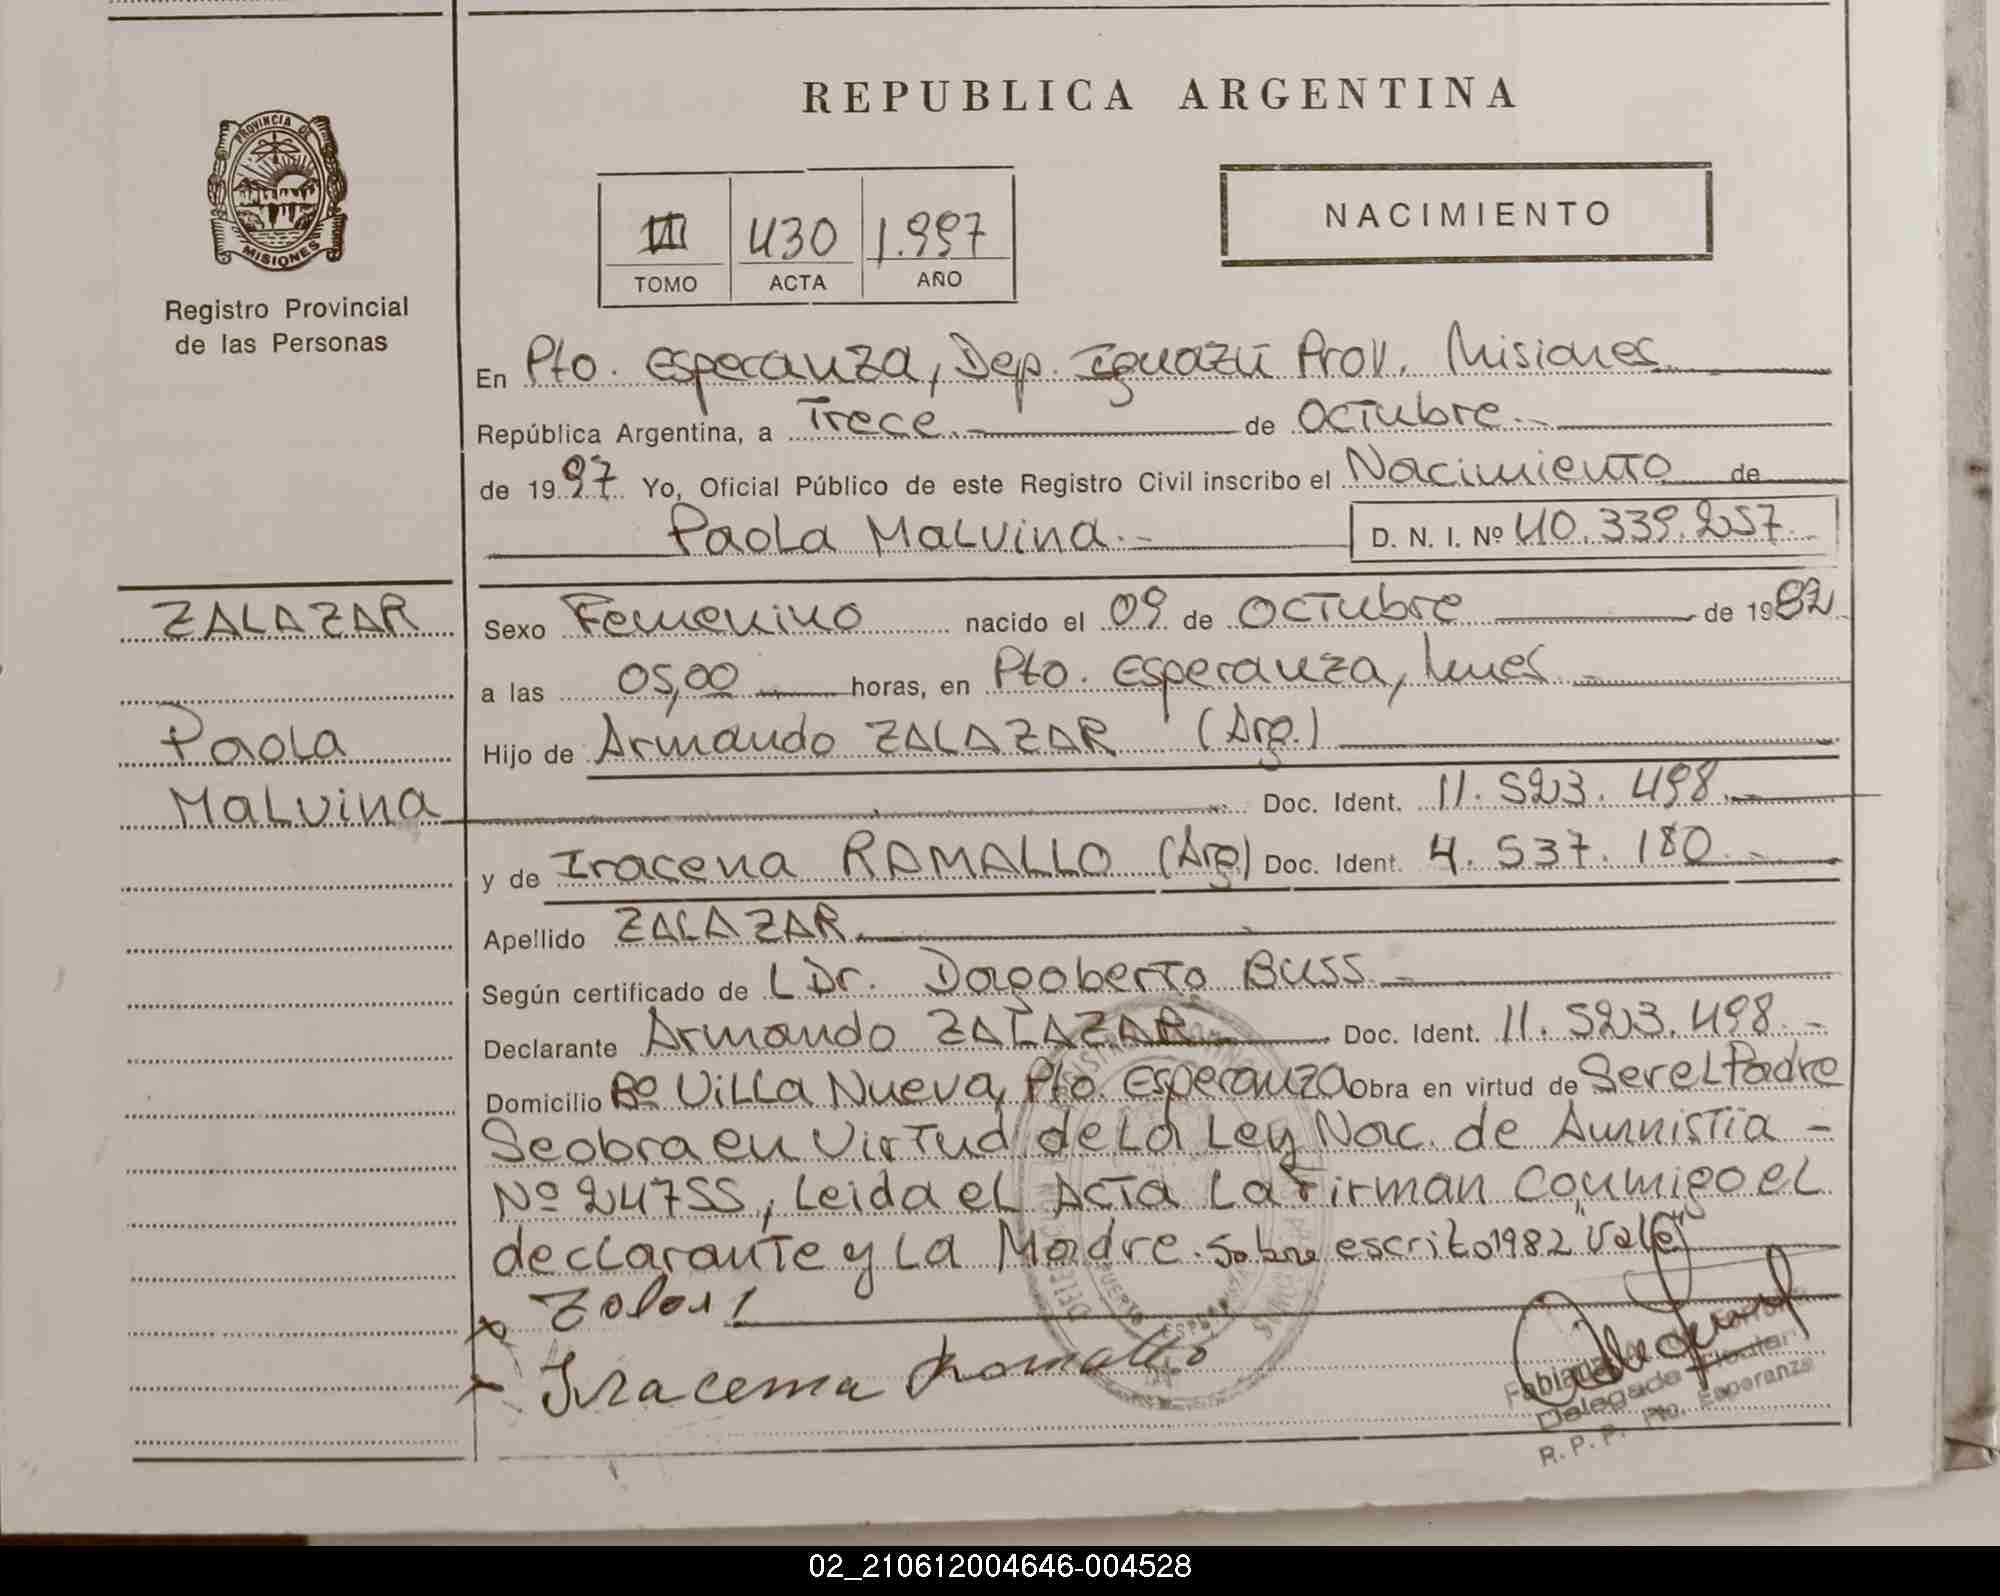 REPUBLICA ARGENTINA
PROVINCIA DE
MISIONES
Registro Provincial
de las Personas
III 430 1.997
TOMO ACTA AÑO
NACIMIENTO
En Pto. Esperanza, Dep. Iguazú Prov. Misiones
República Argentina, a Trece de Octubre
de 1997 Yo, Oficial Público de este Registro Civil inscribo el Nacimiento de
Paola Malvina D. N. I. Nº 40.339.257
ZALAZAR
Paola
Malvina
Sexo Femenino nacido el 09 de Octubre de 1982
a las 05,00 horas, en Pto. Esperanza, Mnes
Hijo de Armando ZALAZAR (Arg.)
Doc. Ident. 11.523.498
y de Iracena RAMALLO (Arg) Doc. Ident. 4.537.180
Apellido ZALAZAR
Según certificado de L Dr. Dagoberto Buss
Declarante Armando ZALAZAR Doc. Ident. 11.523.498
Domicilio Bº Villa Nueva, Pto. Esperanza Obra en virtud de Ser el Padre
Se obra en Virtud de La Ley Nac. de Amnistía -
Nº 24755, Leida el Acta La Firman Conmigo el
declarante y La Madre. Sobre escrito 1982 "Vale"
Iracema Ramallo
Delegada Titular
R. P. P. Pto. Esperanza
02_210612004646-004528